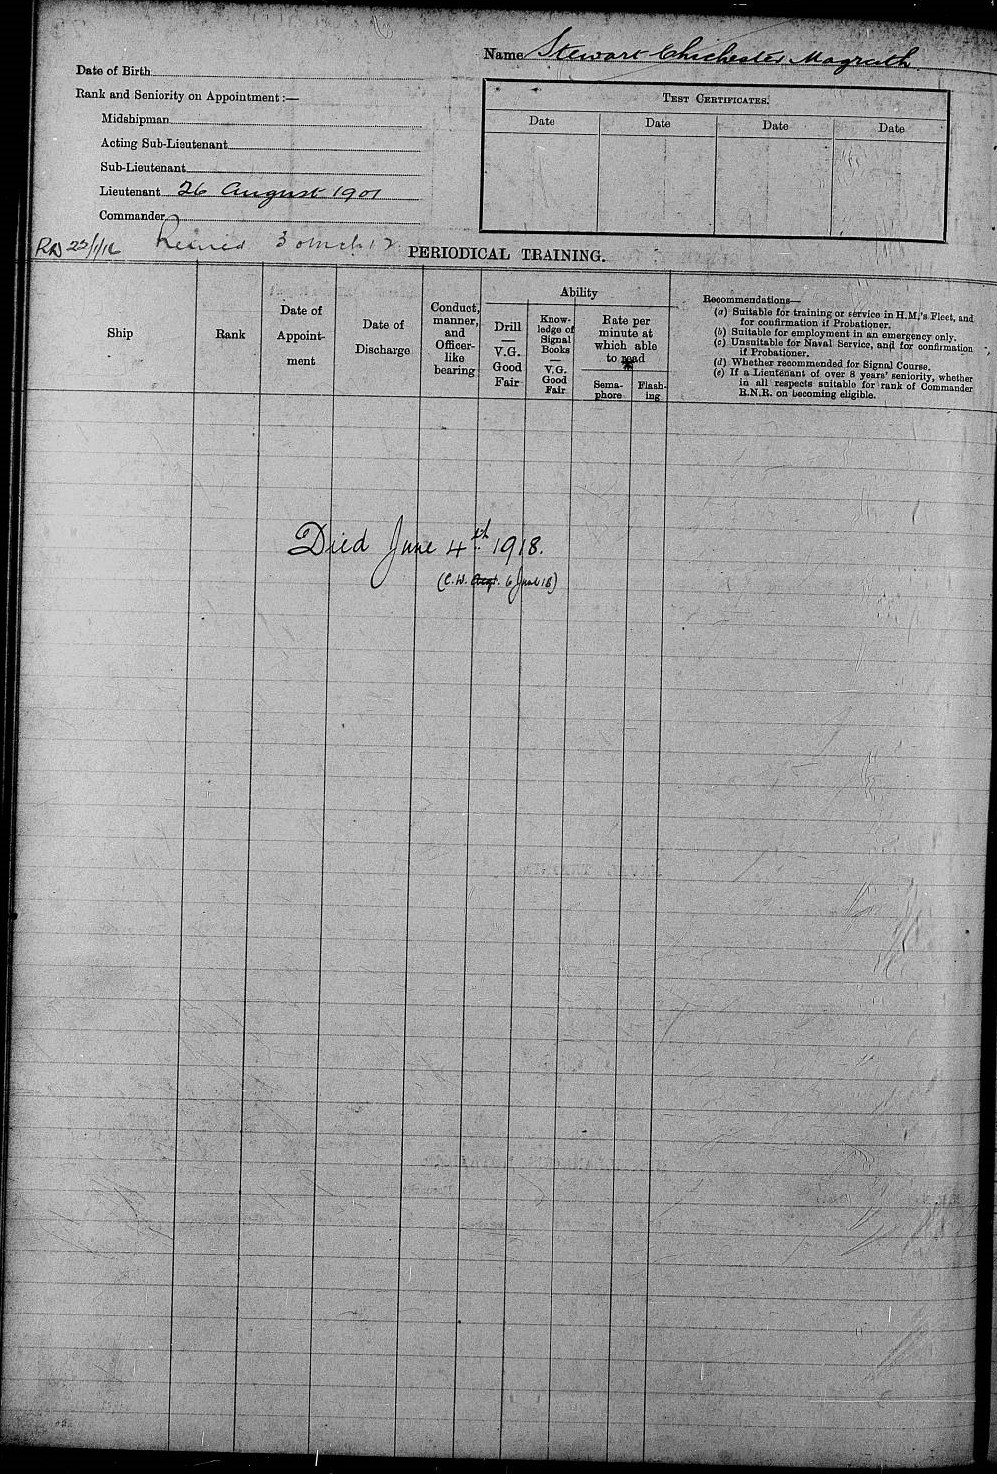 Name Stewart Chichester Magrath
Date of Birth
Rank and Seniority on Appointment :—
Midshipman
Acting Sub-Lieutenant
Sub-Lieutenant
Lieutenant 26 August 1901
Commander
Test Certificates.
Date Date Date Date
Retired
PERIODICAL TRAINING.
Ship
Rank
Date of
Appoint-
ment
Date of
Discharge
Conduct,
manner,
and
Officer-
like
bearing
Ability
Drill
—
V.G.
Good
Fair
Know-
ledge of
Signal
Books
—
V.G.
Good
Fair
Rate per
minute at
which able
to read
*
Sema-
phore
Flash-
ing
Recommendations—
(a) Suitable for training or service in H.M.'s Fleet, and
for confirmation if Probationer.
(b) Suitable for employment in an emergency only.
(c) Unsuitable for Naval Service, and for confirmation
if Probationer.
(d) Whether recommended for Signal Course.
(e) If a Lieutenant of over 8 years' seniority, whether
in all respects suitable for rank of Commander
R.N.R. on becoming eligible.
Died June 4th 1918.
(C.W. 6 June 18)